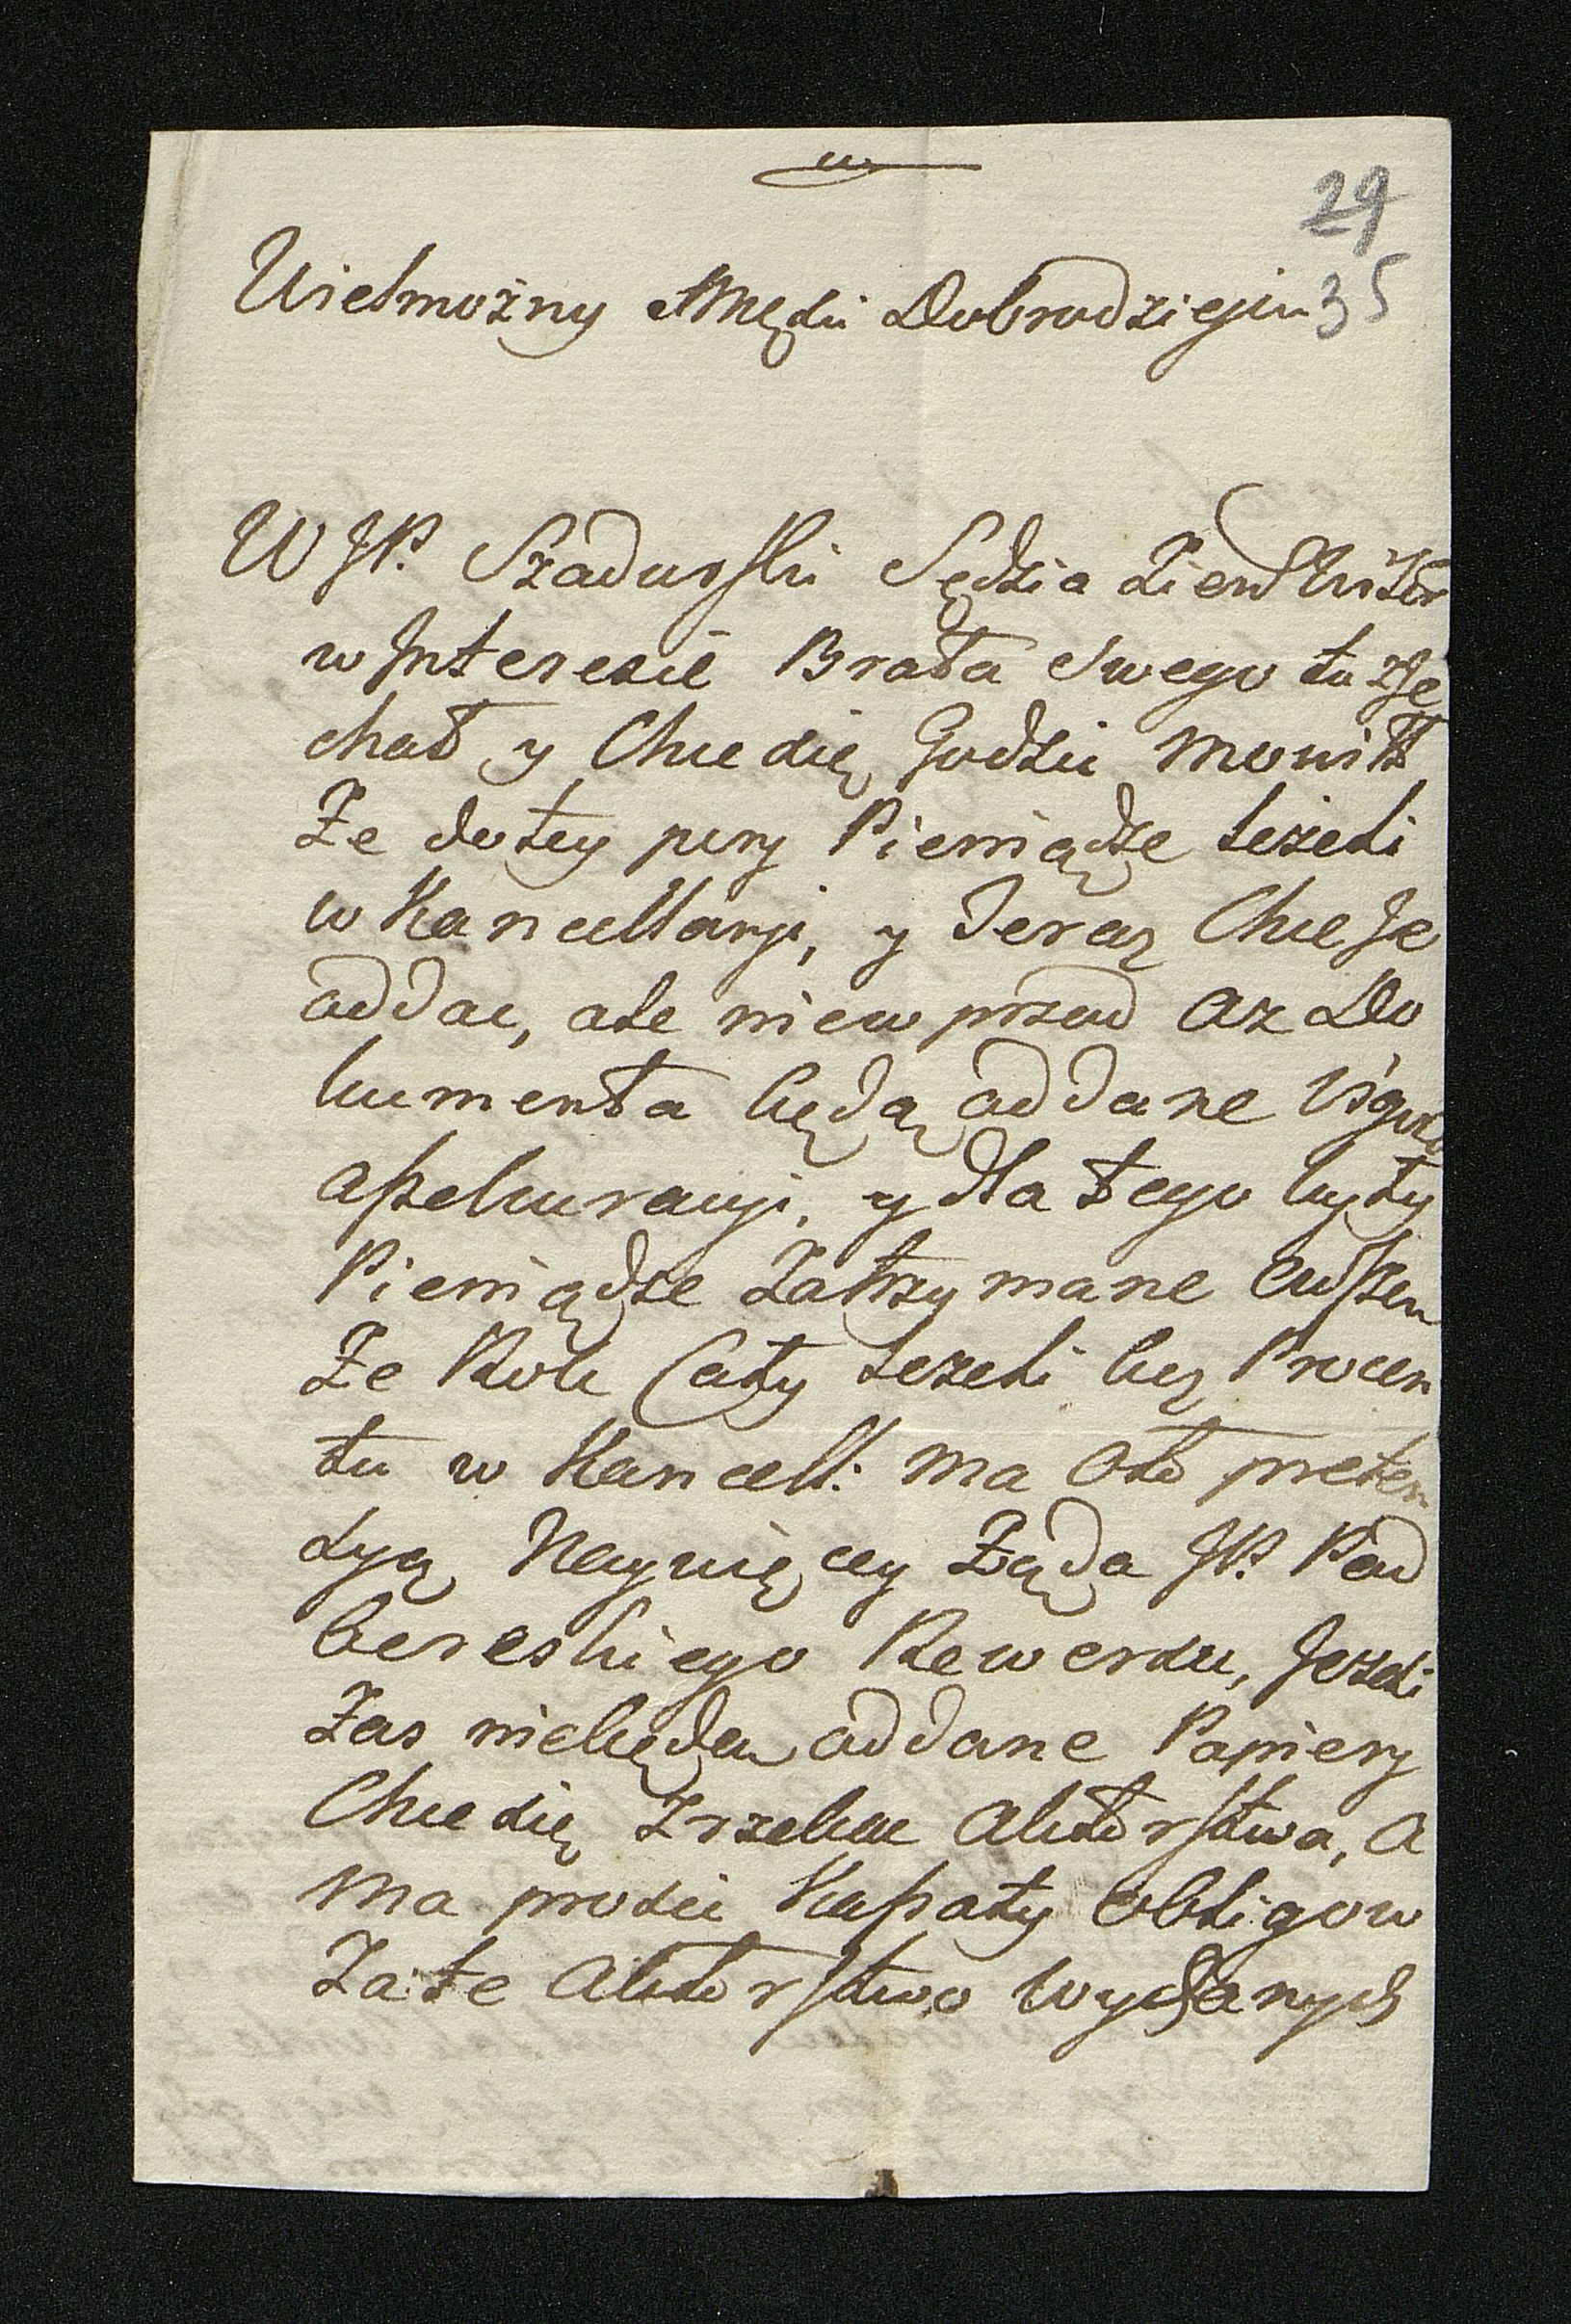 29
Wielmożny Mści Dobrodzieju
35
WJP. Szadurski Sędzia Ziem
w Jnteresie Brata Swego tu zJe
chał y Chce się Godzic mowił
Ze do tey pory Pieniądze leżeli
w Kancellaryi, y Teraz Chce Je
oddac, ale niew przod az Do
kumenta będą oddane
assekuracyi, y dla tego były
Pieniądze Zatrzymane
Ze Rok Cały leżeli bez Procen
tu w Kancell: ma Oto preten
syą Naywięcey Ząda JP. Pod
bereskiego Rewersu, Jezeli
Zas niebędą oddane Papiery
Chce się Zrzekac Aktorstwa, a
ma prosic Kassaty obligow
Za te Aktorstwo Wydanych